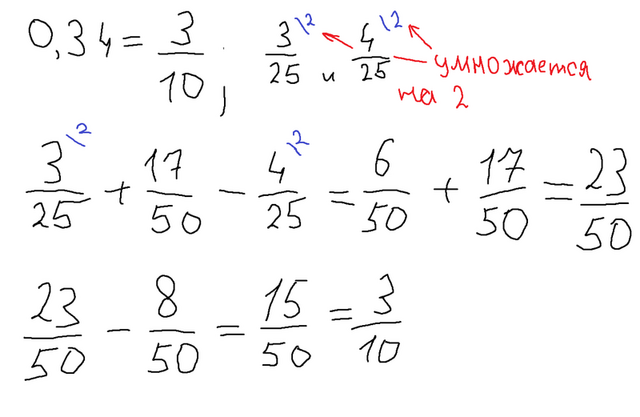 0,34 = 3/10; 3\2/25 и 4\2/25 — умножается на 2
3\2/25 + 17/50 − 4\2/25 = 6/50 + 17/50 = 23/50
23/50 − 8/50 = 15/50 = 3/10